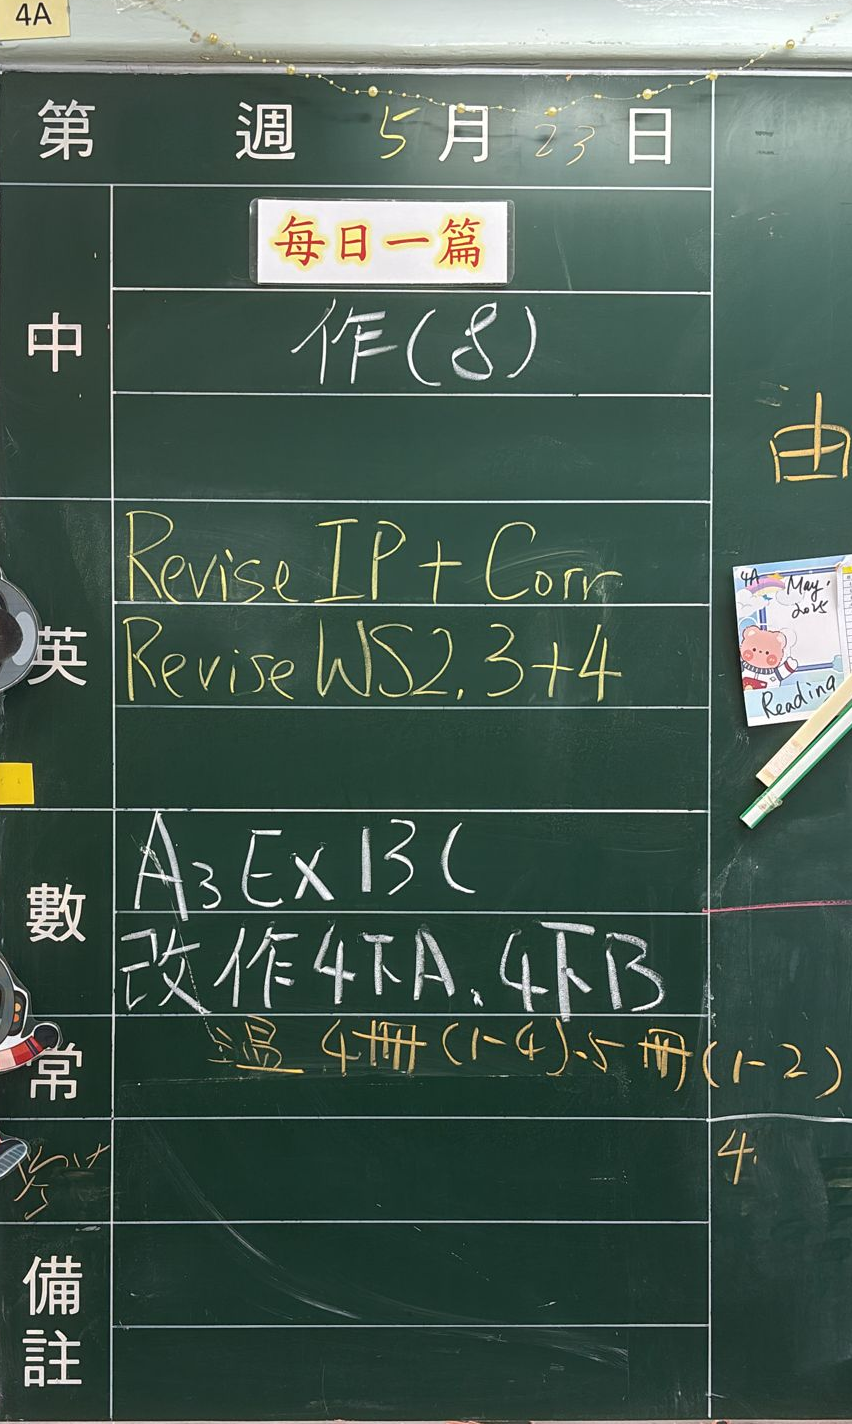 4A
第 週 5月23日
中
每日一篇
作(8)
英
Revise IP + Corr
Revise WS2.3+4
數
A3 Ex 13C
改作4下A、4下B
常
溫 4冊(1-4)、5冊(1-2)
備註
由
4A
May.
2025
Reading
4.